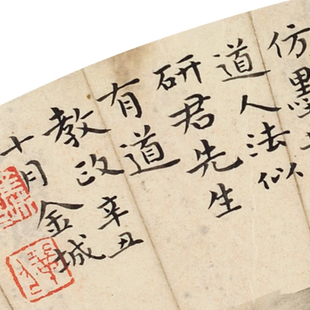 仿墨
道人法似
研君先生
有道
教政辛丑
十月金城